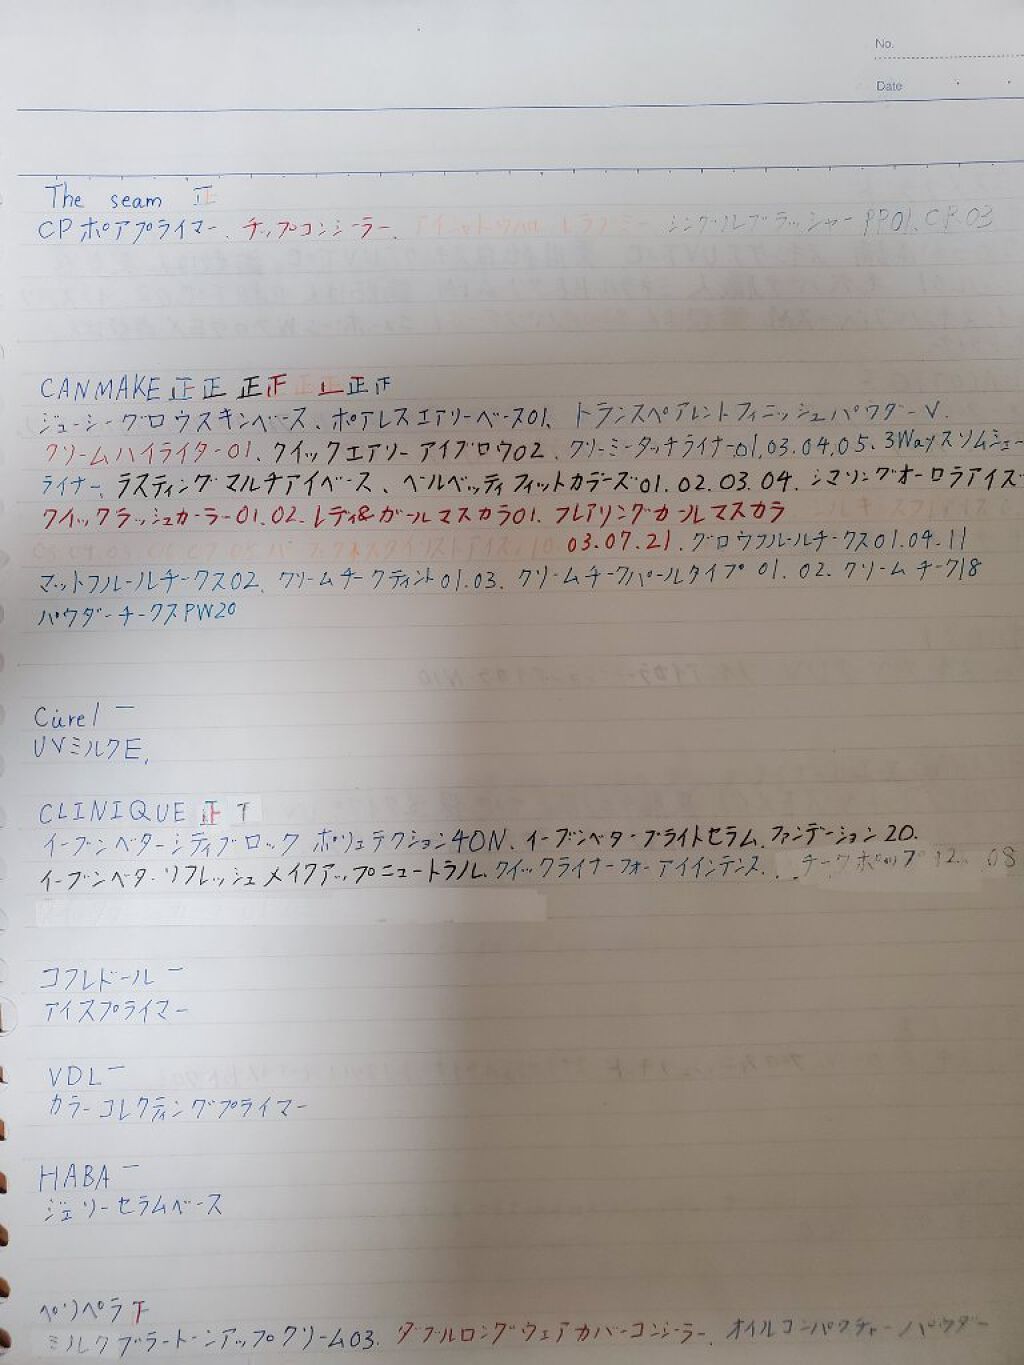 No.
Date
The seam 正
CPポアプライマー、チップコンシーラー、シングルブラッシャーPP01.CR03
CANMAKE 正正正正正正正下
ジューシーグロウスキンベース、ポアレスエアリーベース01、トランスペアレントフィニッシュパウダーV.
クリームハイライター01、クイックエアリーアイブロウ02、クリーミータッチライナー01.03.04.05、3Wayスリムシェー
ライナー、ラスティングマルチアイベース、ベルベッティフィットカラーズ01.02.03.04、シマリングオーロラアイズ
クイックラッシュカーラー01.02、レディ&ガールマスカラ01、フレアリングカールマスカラ
03.07.21、グロウフルールチークス01.04.11
マットフルールチークス02、クリームチークティント01.03、クリームチークパールタイプ01.02、クリームチーク18
パウダーチークスPW20
Curel 一
UVミルクE,
CLINIQUE 正下
イーブンベターシティブロックポリュテクション40N、イーブンベターブライトセラムファンデーション20.
イーブンベターリフレッシュメイクアップニュートラル、クイックライナーフォーアイインテンス、チークポップ12.08
コフレドール 一
アイズプライマー
VDL 一
カラーコレクティングプライマー
HABA 一
ジェリーセラムベース
ペリペラ 下
ミルクブラートーンアップクリーム03、ダブルロングウェアカバーコンシーラー、オイルコンパクチャーパウダー